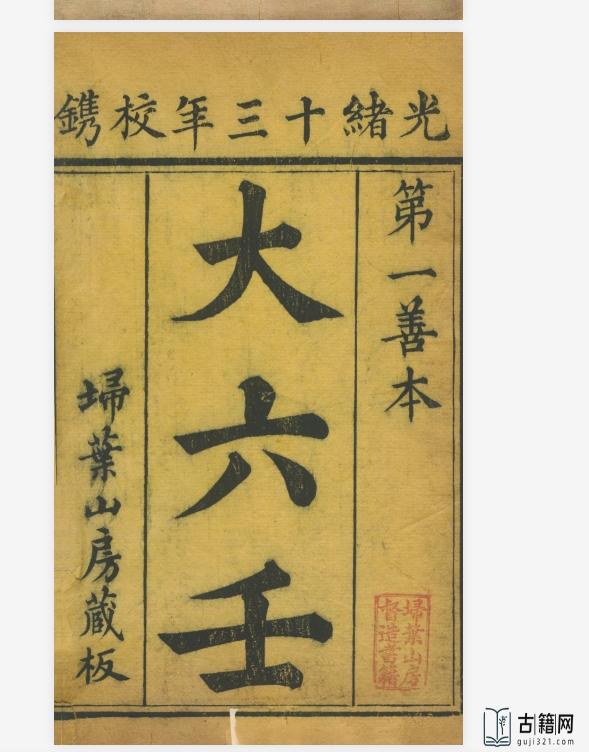 光緒十三年校鐫
第一善本
大六壬
埽葉山房藏板
埽葉山房
督造書籍
古籍网
guji321.com